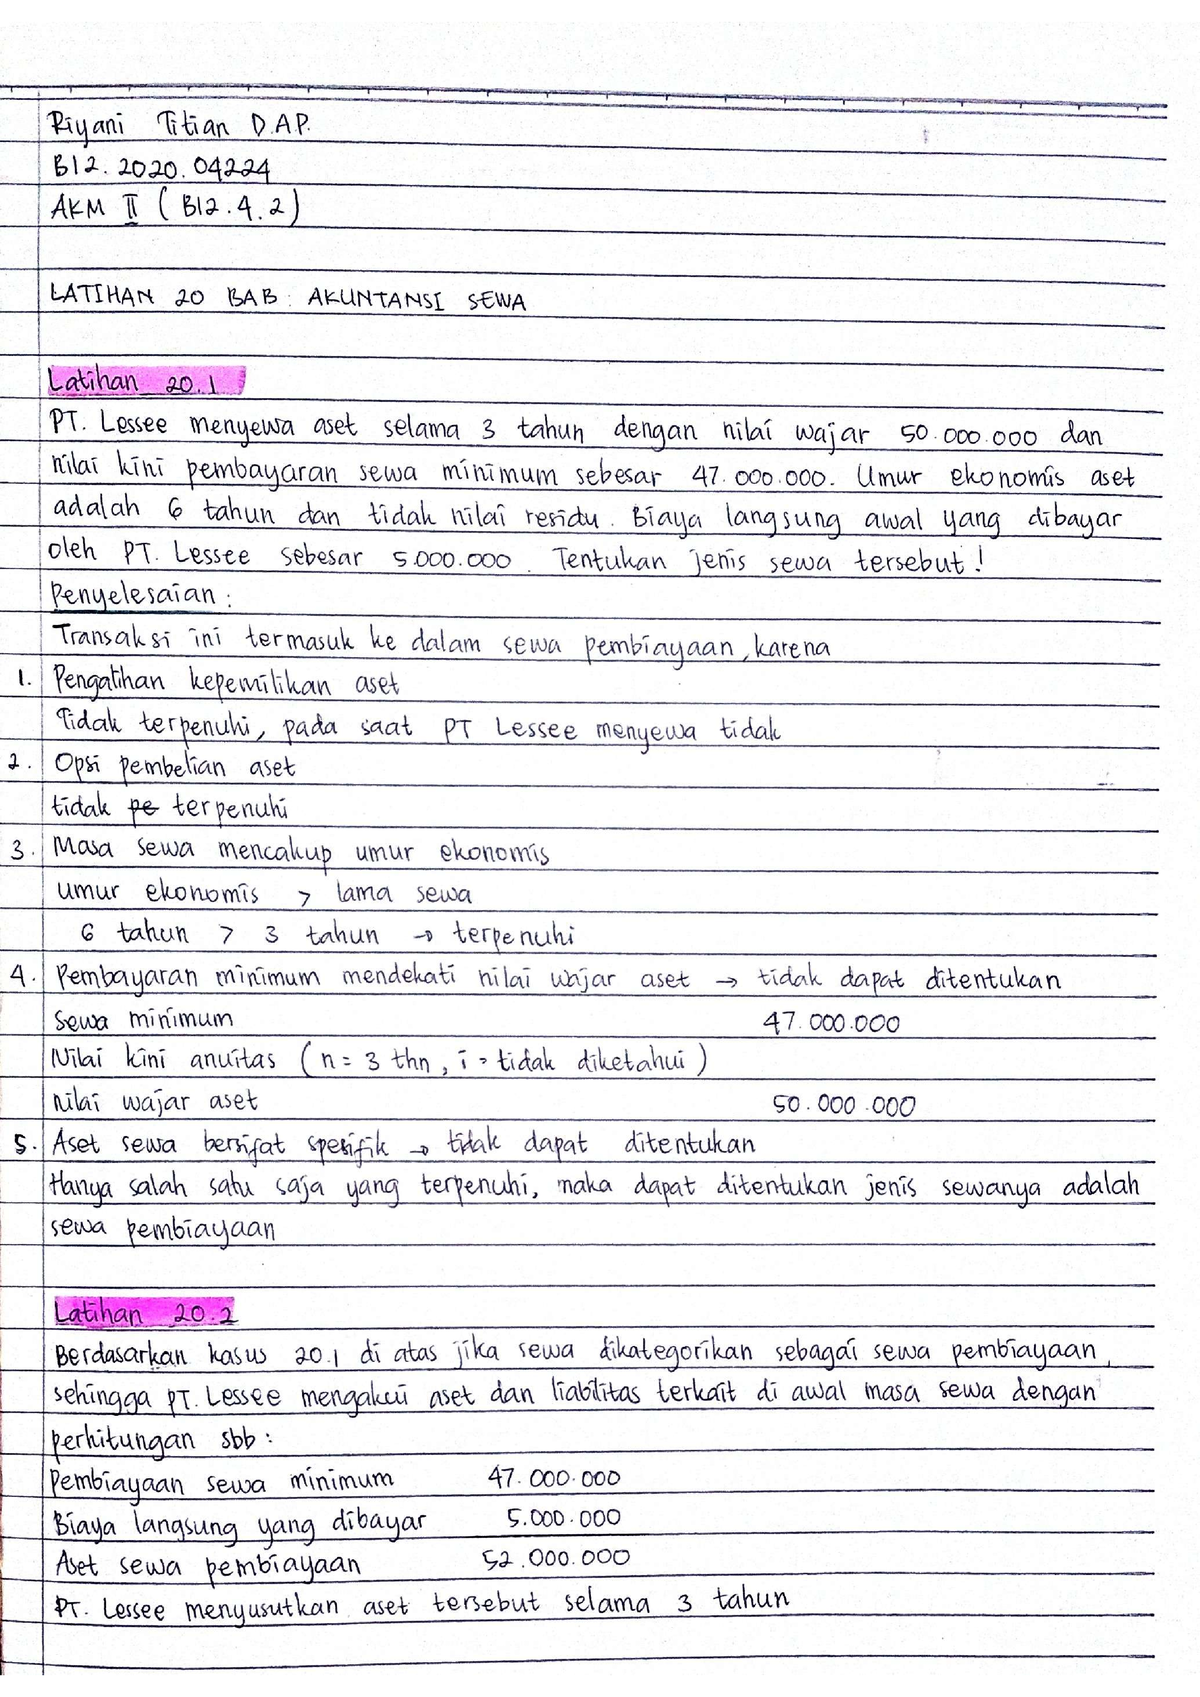 Riyani Titian D.A.P.
B12.2020.04224
AKM II (B12.4.2)
LATIHAN 20 BAB : AKUNTANSI SEWA
Latihan 20.1
PT. Lessee menyewa aset selama 3 tahun dengan nilai wajar 50.000.000 dan
nilai kini pembayaran sewa minimum sebesar 47.000.000. Umur ekonomis aset
adalah 6 tahun dan tidak nilai residu. Biaya langsung awal yang dibayar
oleh PT. Lessee sebesar 5.000.000. Tentukan jenis sewa tersebut!
Penyelesaian :
Transaksi ini termasuk ke dalam sewa pembiayaan, karena
1. Pengalihan kepemilikan aset
Tidak terpenuhi, pada saat PT Lessee menyewa tidak
2. Opsi pembelian aset
tidak pe terpenuhi
3. Masa sewa mencakup umur ekonomis
umur ekonomis > lama sewa
6 tahun > 3 tahun → terpenuhi
4. Pembayaran minimum mendekati nilai wajar aset → tidak dapat ditentukan
Sewa minimum 47.000.000
Nilai kini anuitas (n = 3 thn, i = tidak diketahui)
nilai wajar aset 50.000.000
5. Aset sewa bersifat spesifik → tidak dapat ditentukan
Hanya salah satu saja yang terpenuhi, maka dapat ditentukan jenis sewanya adalah
sewa pembiayaan
Latihan 20.2
Berdasarkan kasus 20.1 di atas jika sewa dikategorikan sebagai sewa pembiayaan,
sehingga PT. Lessee mengakui aset dan liabilitas terkait di awal masa sewa dengan
perhitungan sbb :
Pembiayaan sewa minimum 47.000.000
Biaya langsung yang dibayar 5.000.000
Aset sewa pembiayaan 52.000.000
PT. Lessee menyusutkan aset tersebut selama 3 tahun